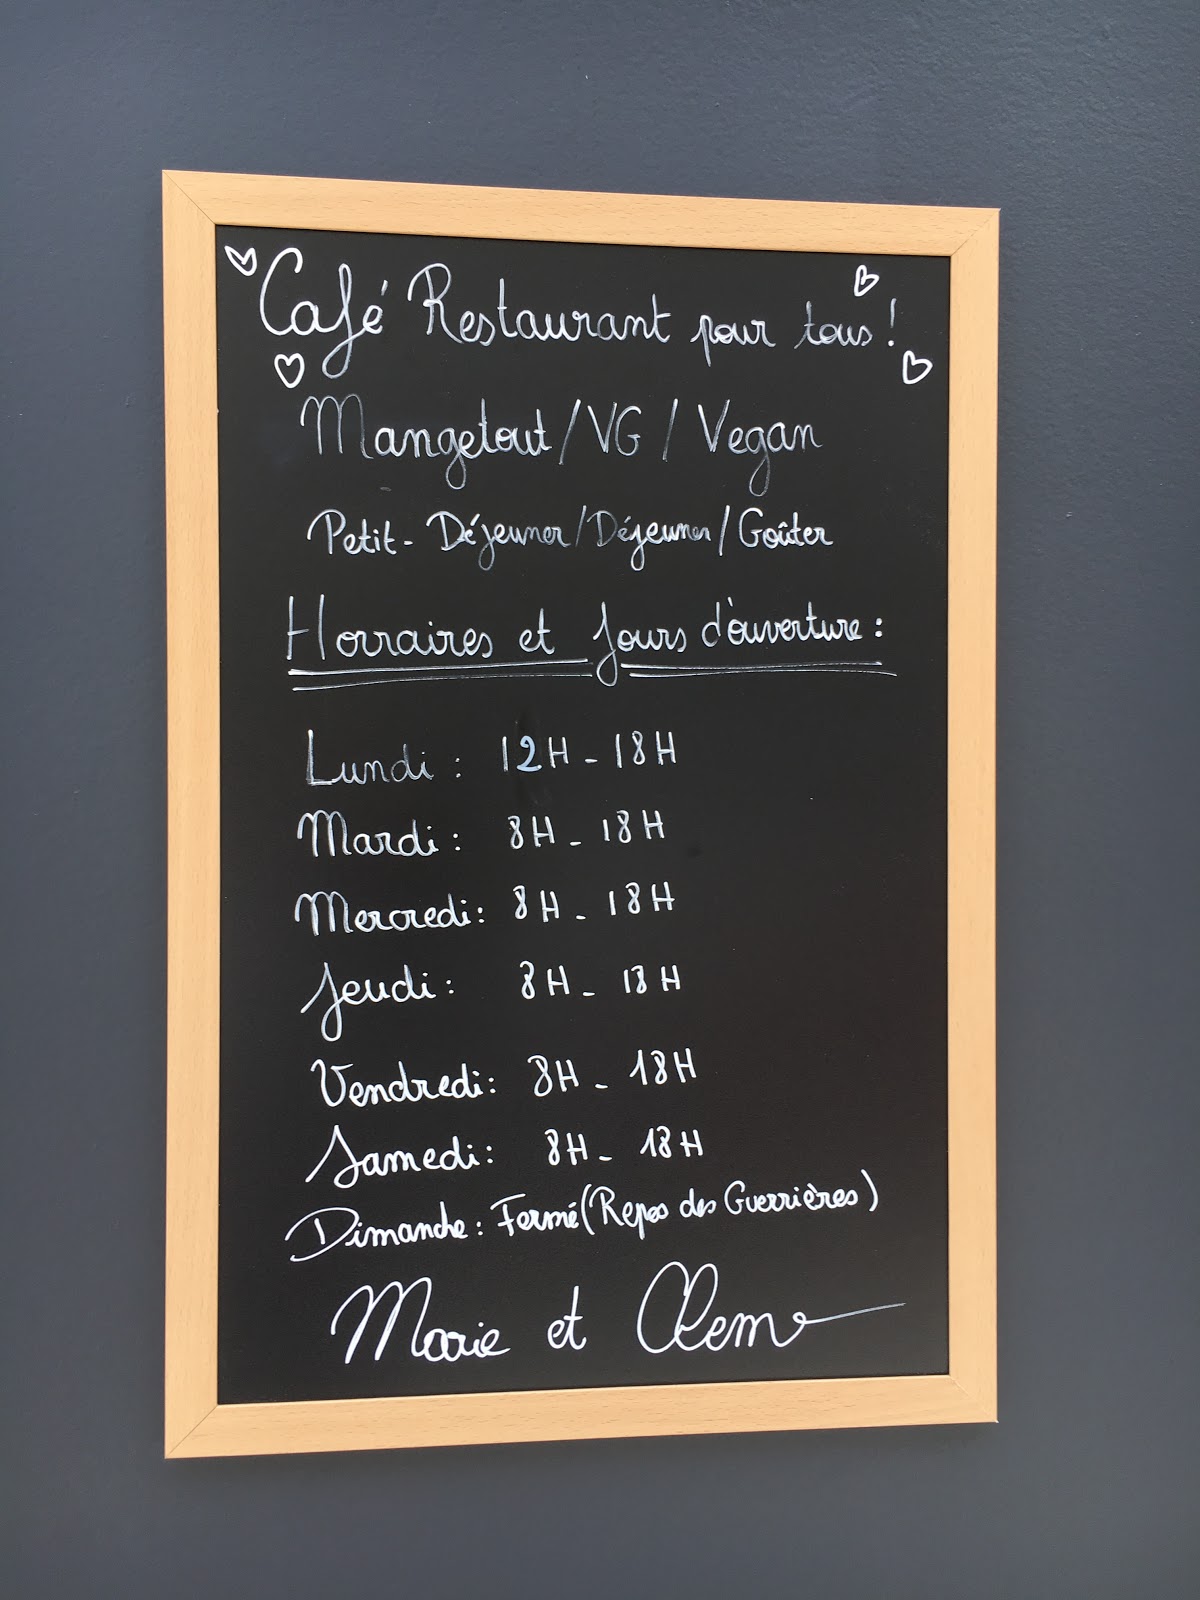 Café Restaurant pour tous !
Mangetout / VG / Vegan
Petit-Déjeuner / Déjeuner / Goûter
Horraires et Jours d'ouverture :
Lundi : 12H - 18H
Mardi : 8H - 18H
Mercredi : 8H - 18H
Jeudi : 8H - 18H
Vendredi : 8H - 18H
Samedi : 8H - 18H
Dimanche : Fermé (Repos des Guerrières)
Marie et Clem